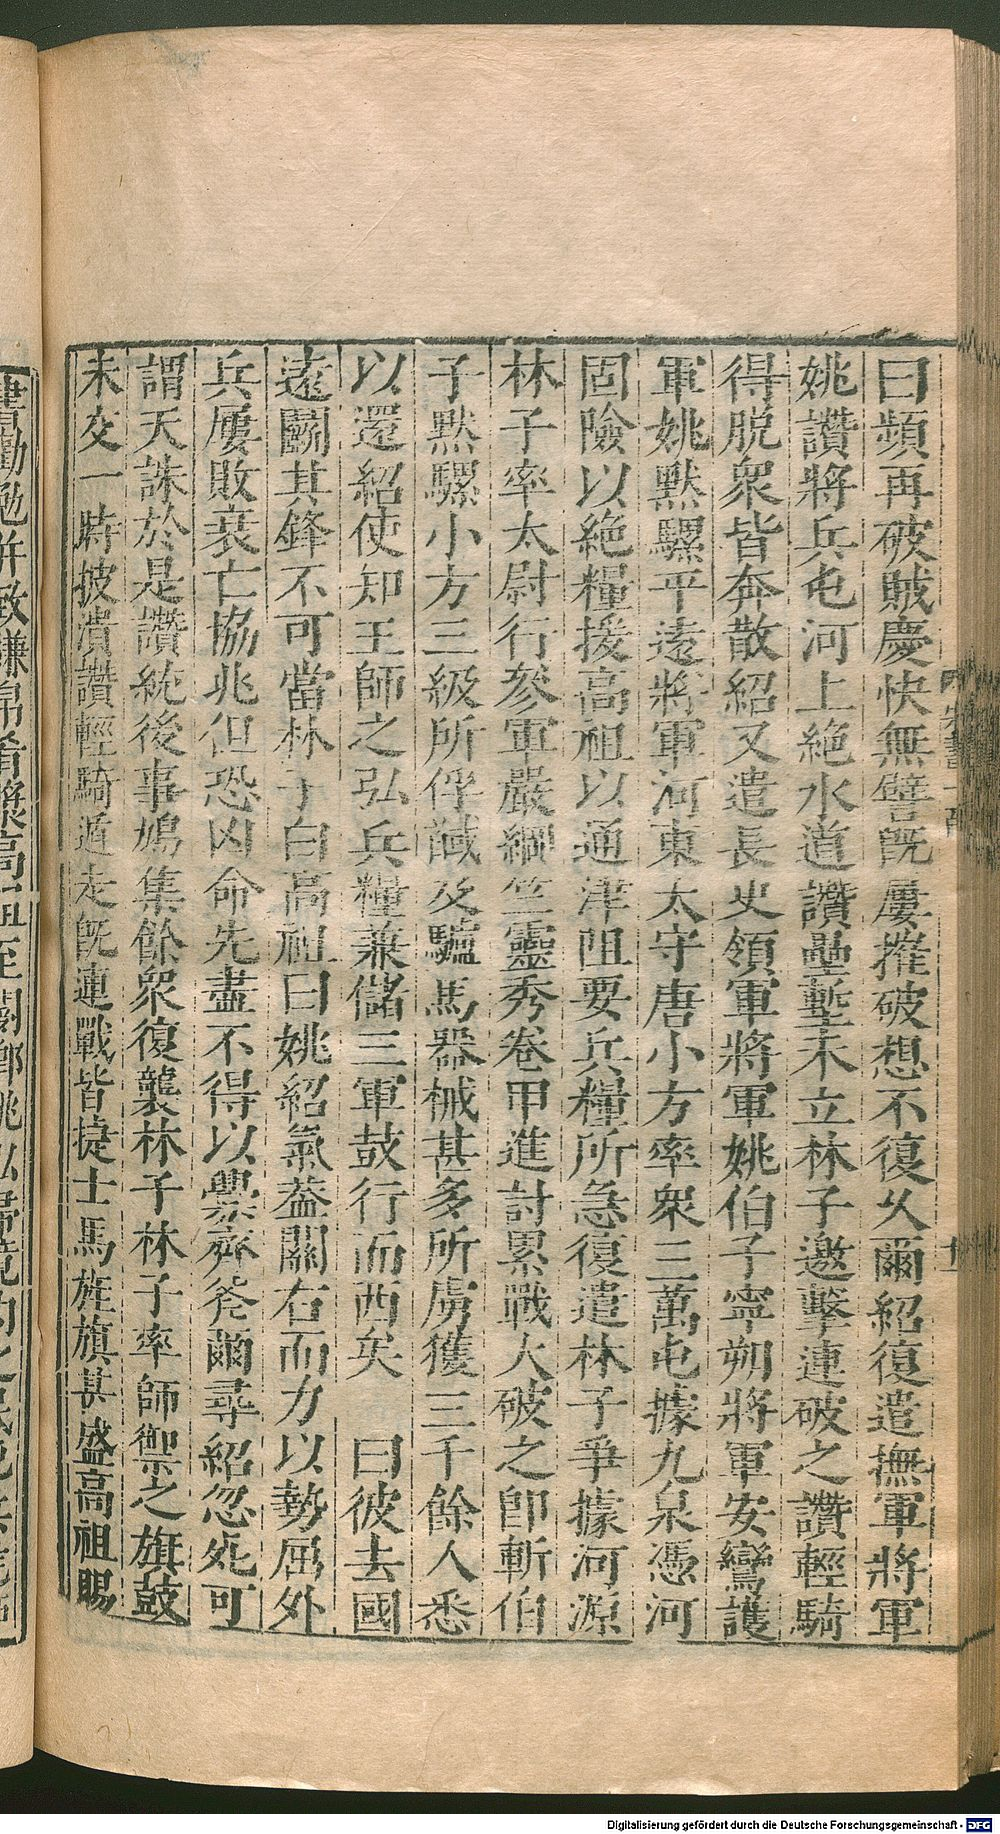 曰頻再破賊慶快無譬旣屢摧破想不復久爾紹復遣撫軍將軍
姚讚將兵屯河上絶水道讚壘塹未立林子邀擊連破之讚輕騎
得脫衆皆奔散紹又遣長史領軍將軍姚伯子寧朔將軍安鸞護
軍姚默騾平遠將軍河東太守唐小方率衆三萬屯據九泉憑河
固險以絶糧援高祖以通津阻要兵糧所急復遣林子爭據河源
林子率太尉行參軍嚴綱竺靈秀卷甲進討累戰大破之卽斬伯
子默騾小方三級所俘馘及驢馬器械甚多所虜獲三千餘人悉
以還紹使知王師之弘兵糧兼儲三軍鼓行而西矣 曰彼去國
遠鬬其鋒不可當林子白高祖曰姚紹氣葢關右而力以勢屈外
兵屢敗衰亡協兆但恐凶命先盡不得以釁齊斧爾尋紹忽死可
謂天誅於是讚統後事鳩集餘衆復襲林子林子率師禦之旗鼓
未交一時披潰讚輕騎遁走旣連戰皆捷士馬旌旗甚盛高祖賜
書勸勉并致
高祖至閿鄉姚泓
Digitalisierung gefördert durch die Deutsche Forschungsgemeinschaft - DFG